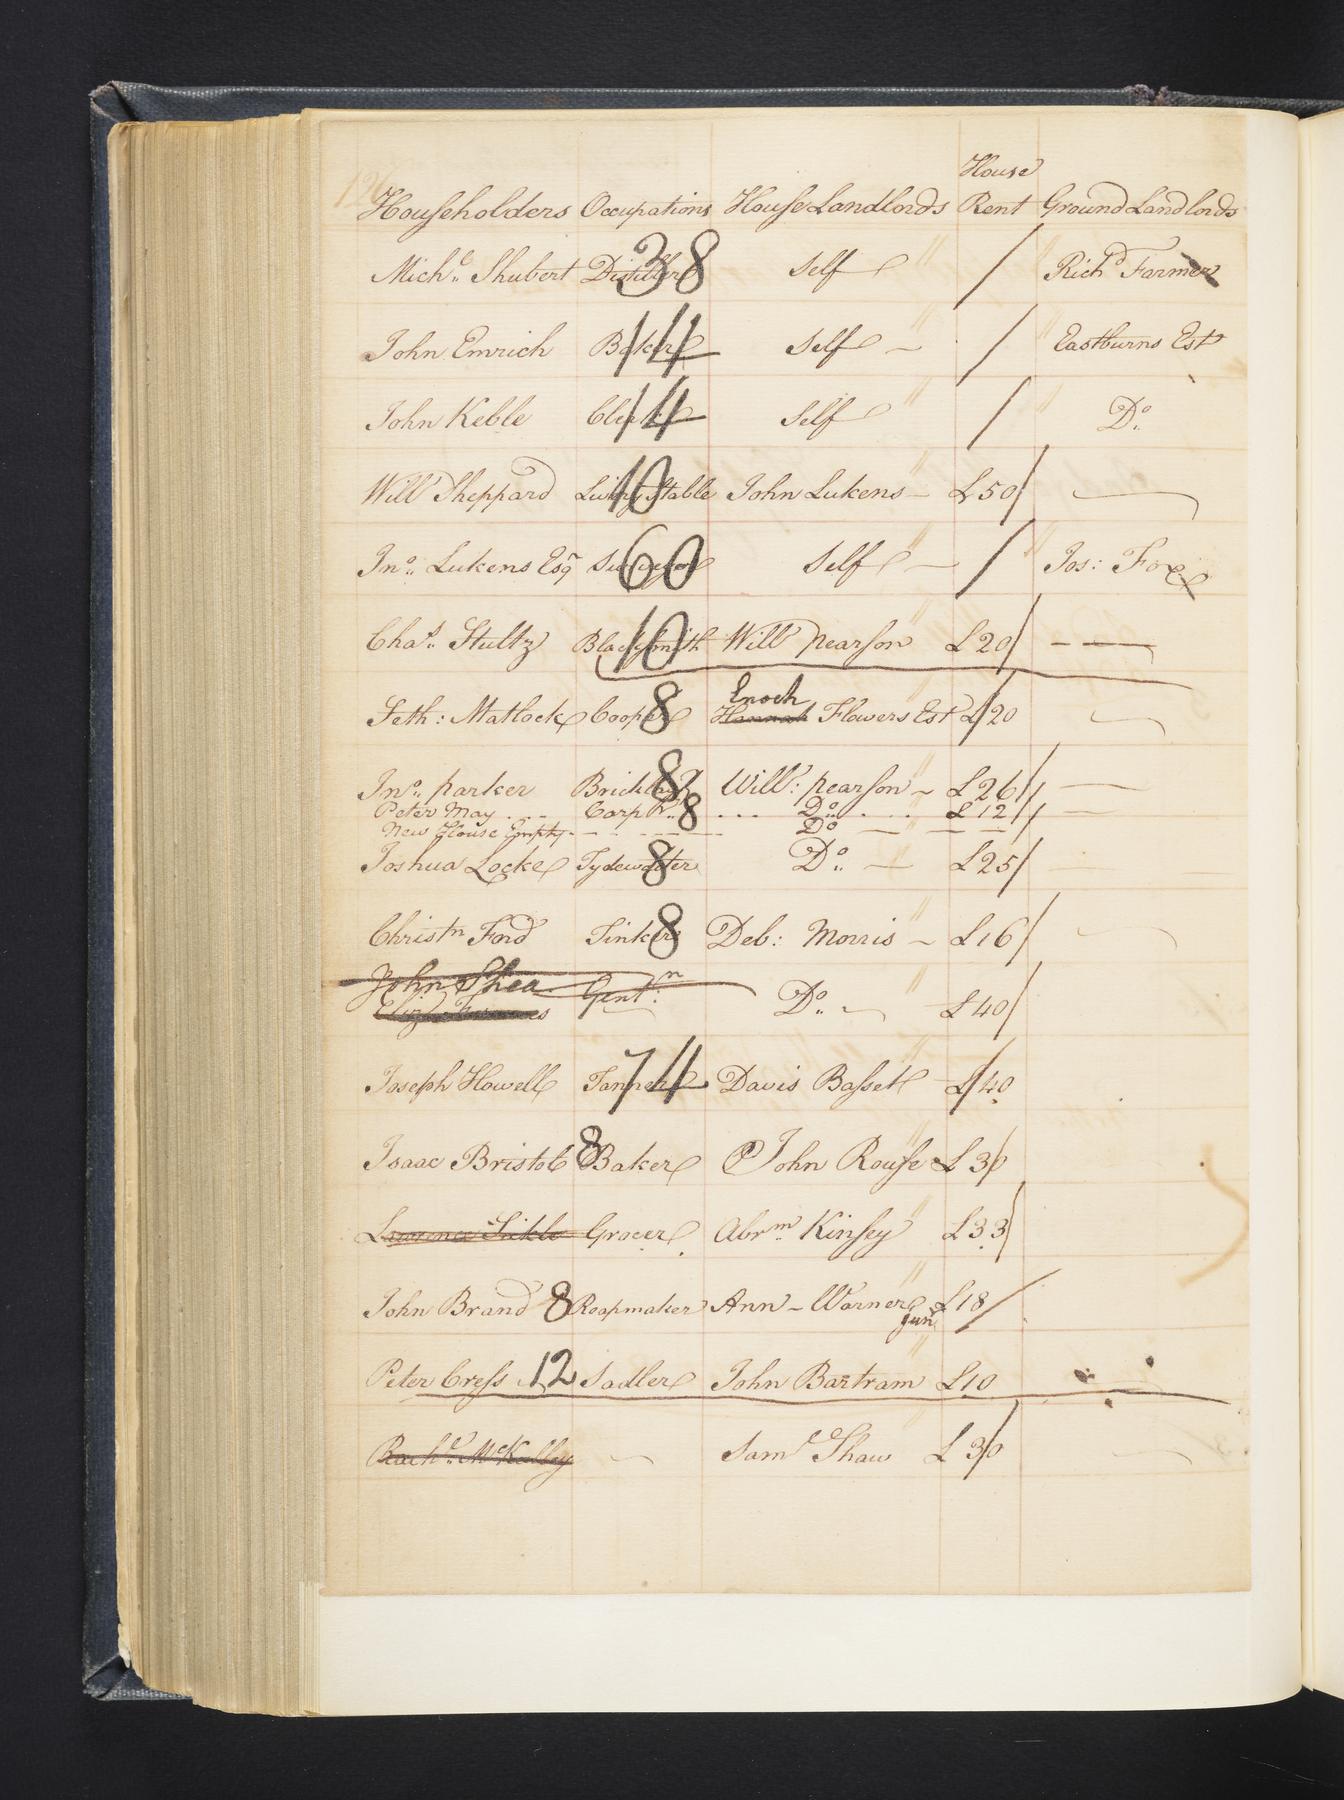 House
Householders Occupations House Landlords Rent Ground Landlords
Mich.l Shubert Distiller 38 Self / Rich.d Farmer
John Emrich Baker 14 Self / Eastburns Est
John Keble Clerk 14 Self / D.o
Will.m Sheppard Livery Stable 10 John Lukens £50/
Jn.o Lukens Esq.r Surveyor 60 Self / Jos: Fox
Cha.s Stultz Blacksmith 10 Will.m Pearson £20/
Enoch
Seth: Matlock Cooper 8 Hannah Flowers Est £20
Jn.o Parker 8 Will.m: Pearson £26//
Peter May Carp.r 8 D.o £12//
New House Empty D.o
Joshua Locke Tydewaiter 8 D.o £25/
Christn Ford Tinker 8 Deb: Morris £16/
John Shea Gent.n
D.o £40/
Joseph Howell Tanner 74 Davis Basset £40
Isaac Bristol 8 Baker John Rouse £30
Lawrence Grocer Abrm Kinsey £33
John Brand 8 Roapmaker Ann Warner £18/
Jun.r
Peter Cress 12 Sadler John Bartram £10
Rach.l Sam.l Shaw £30